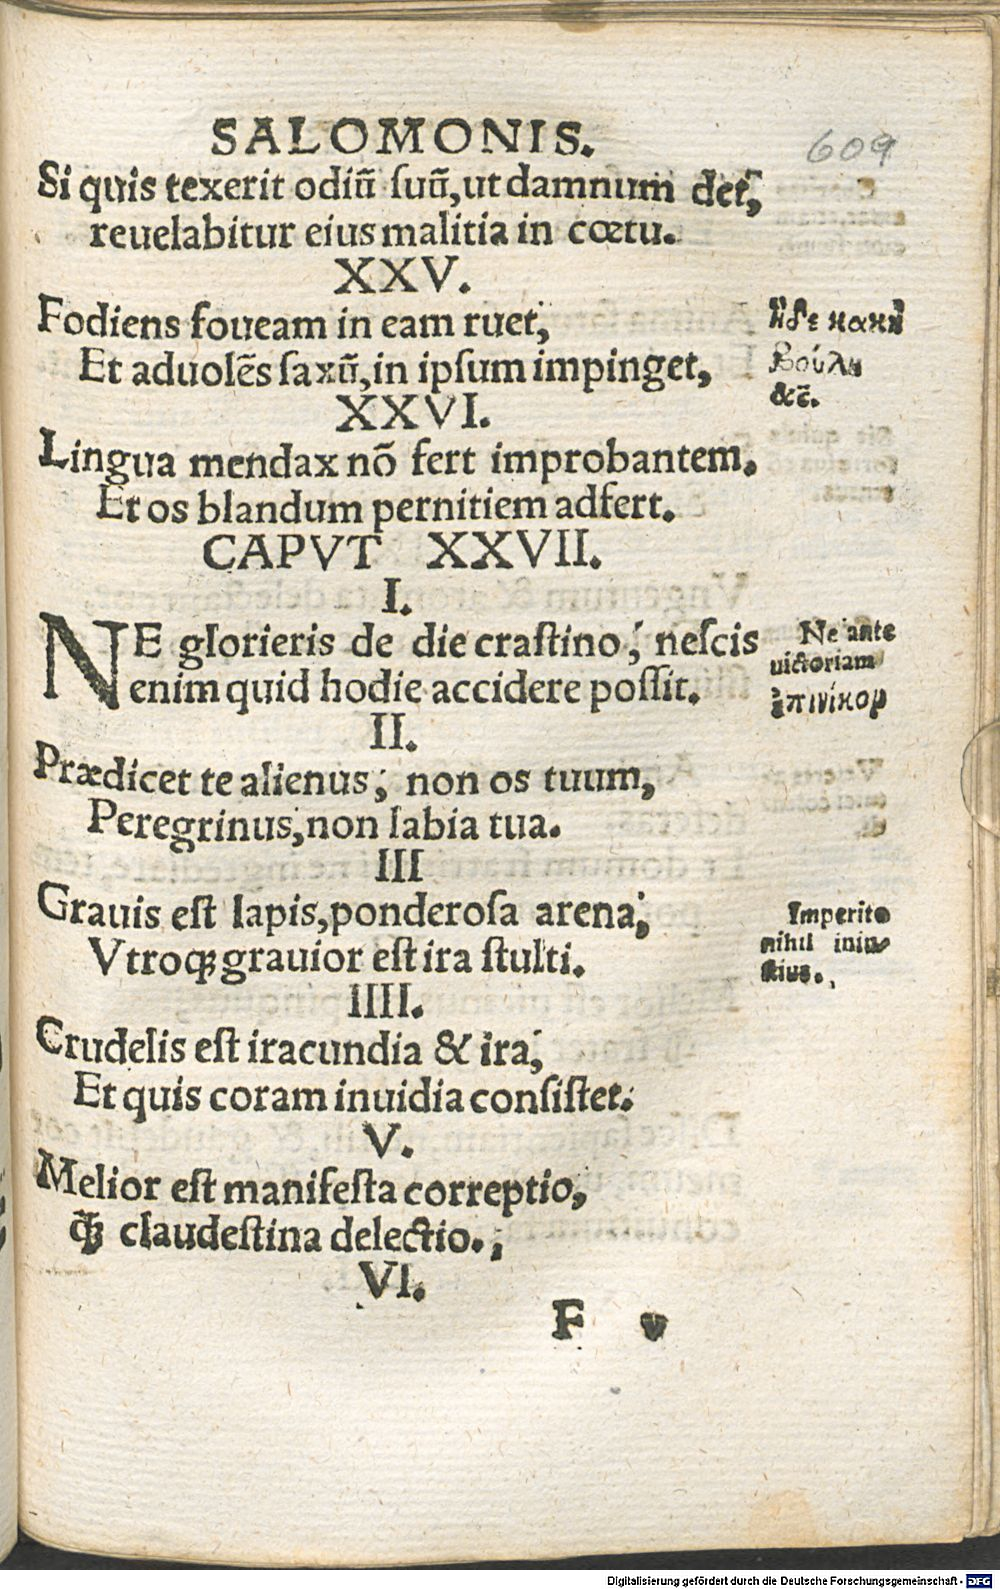 SALOMONIS.
609
Si quis texerit odiū suū, ut damnum det,
reuelabitur eius malitia in cœtu.
XXV.
Fodiens foueam in eam ruet,
Et aduolēs saxū, in ipsum impinget,
ἥδε κακὴ
βούλη
&c̄.
XXVI.
Lingua mendax nō fert improbantem.
Et os blandum pernitiem adfert.
CAPVT XXVII.
I.
NE glorieris de die crastino, nescis
enim quid hodie accidere possit.
Ne ante
uictoriam
ἐπινίκον
II.
Prædicet te alienus, non os tuum,
Peregrinus, non labia tua.
III
Grauis est lapis, ponderosa arena,
Vtroq; grauior est ira stulti.
Imperito
nihil iniu-
stius.
IIII.
Crudelis est iracundia & ira,
Et quis coram inuidia consistet.
V.
Melior est manifesta correptio,
q̄ꝫ claudestina delectio.
VI.
F v
Digitalisierung gefördert durch die Deutsche Forschungsgemeinschaft - DFG